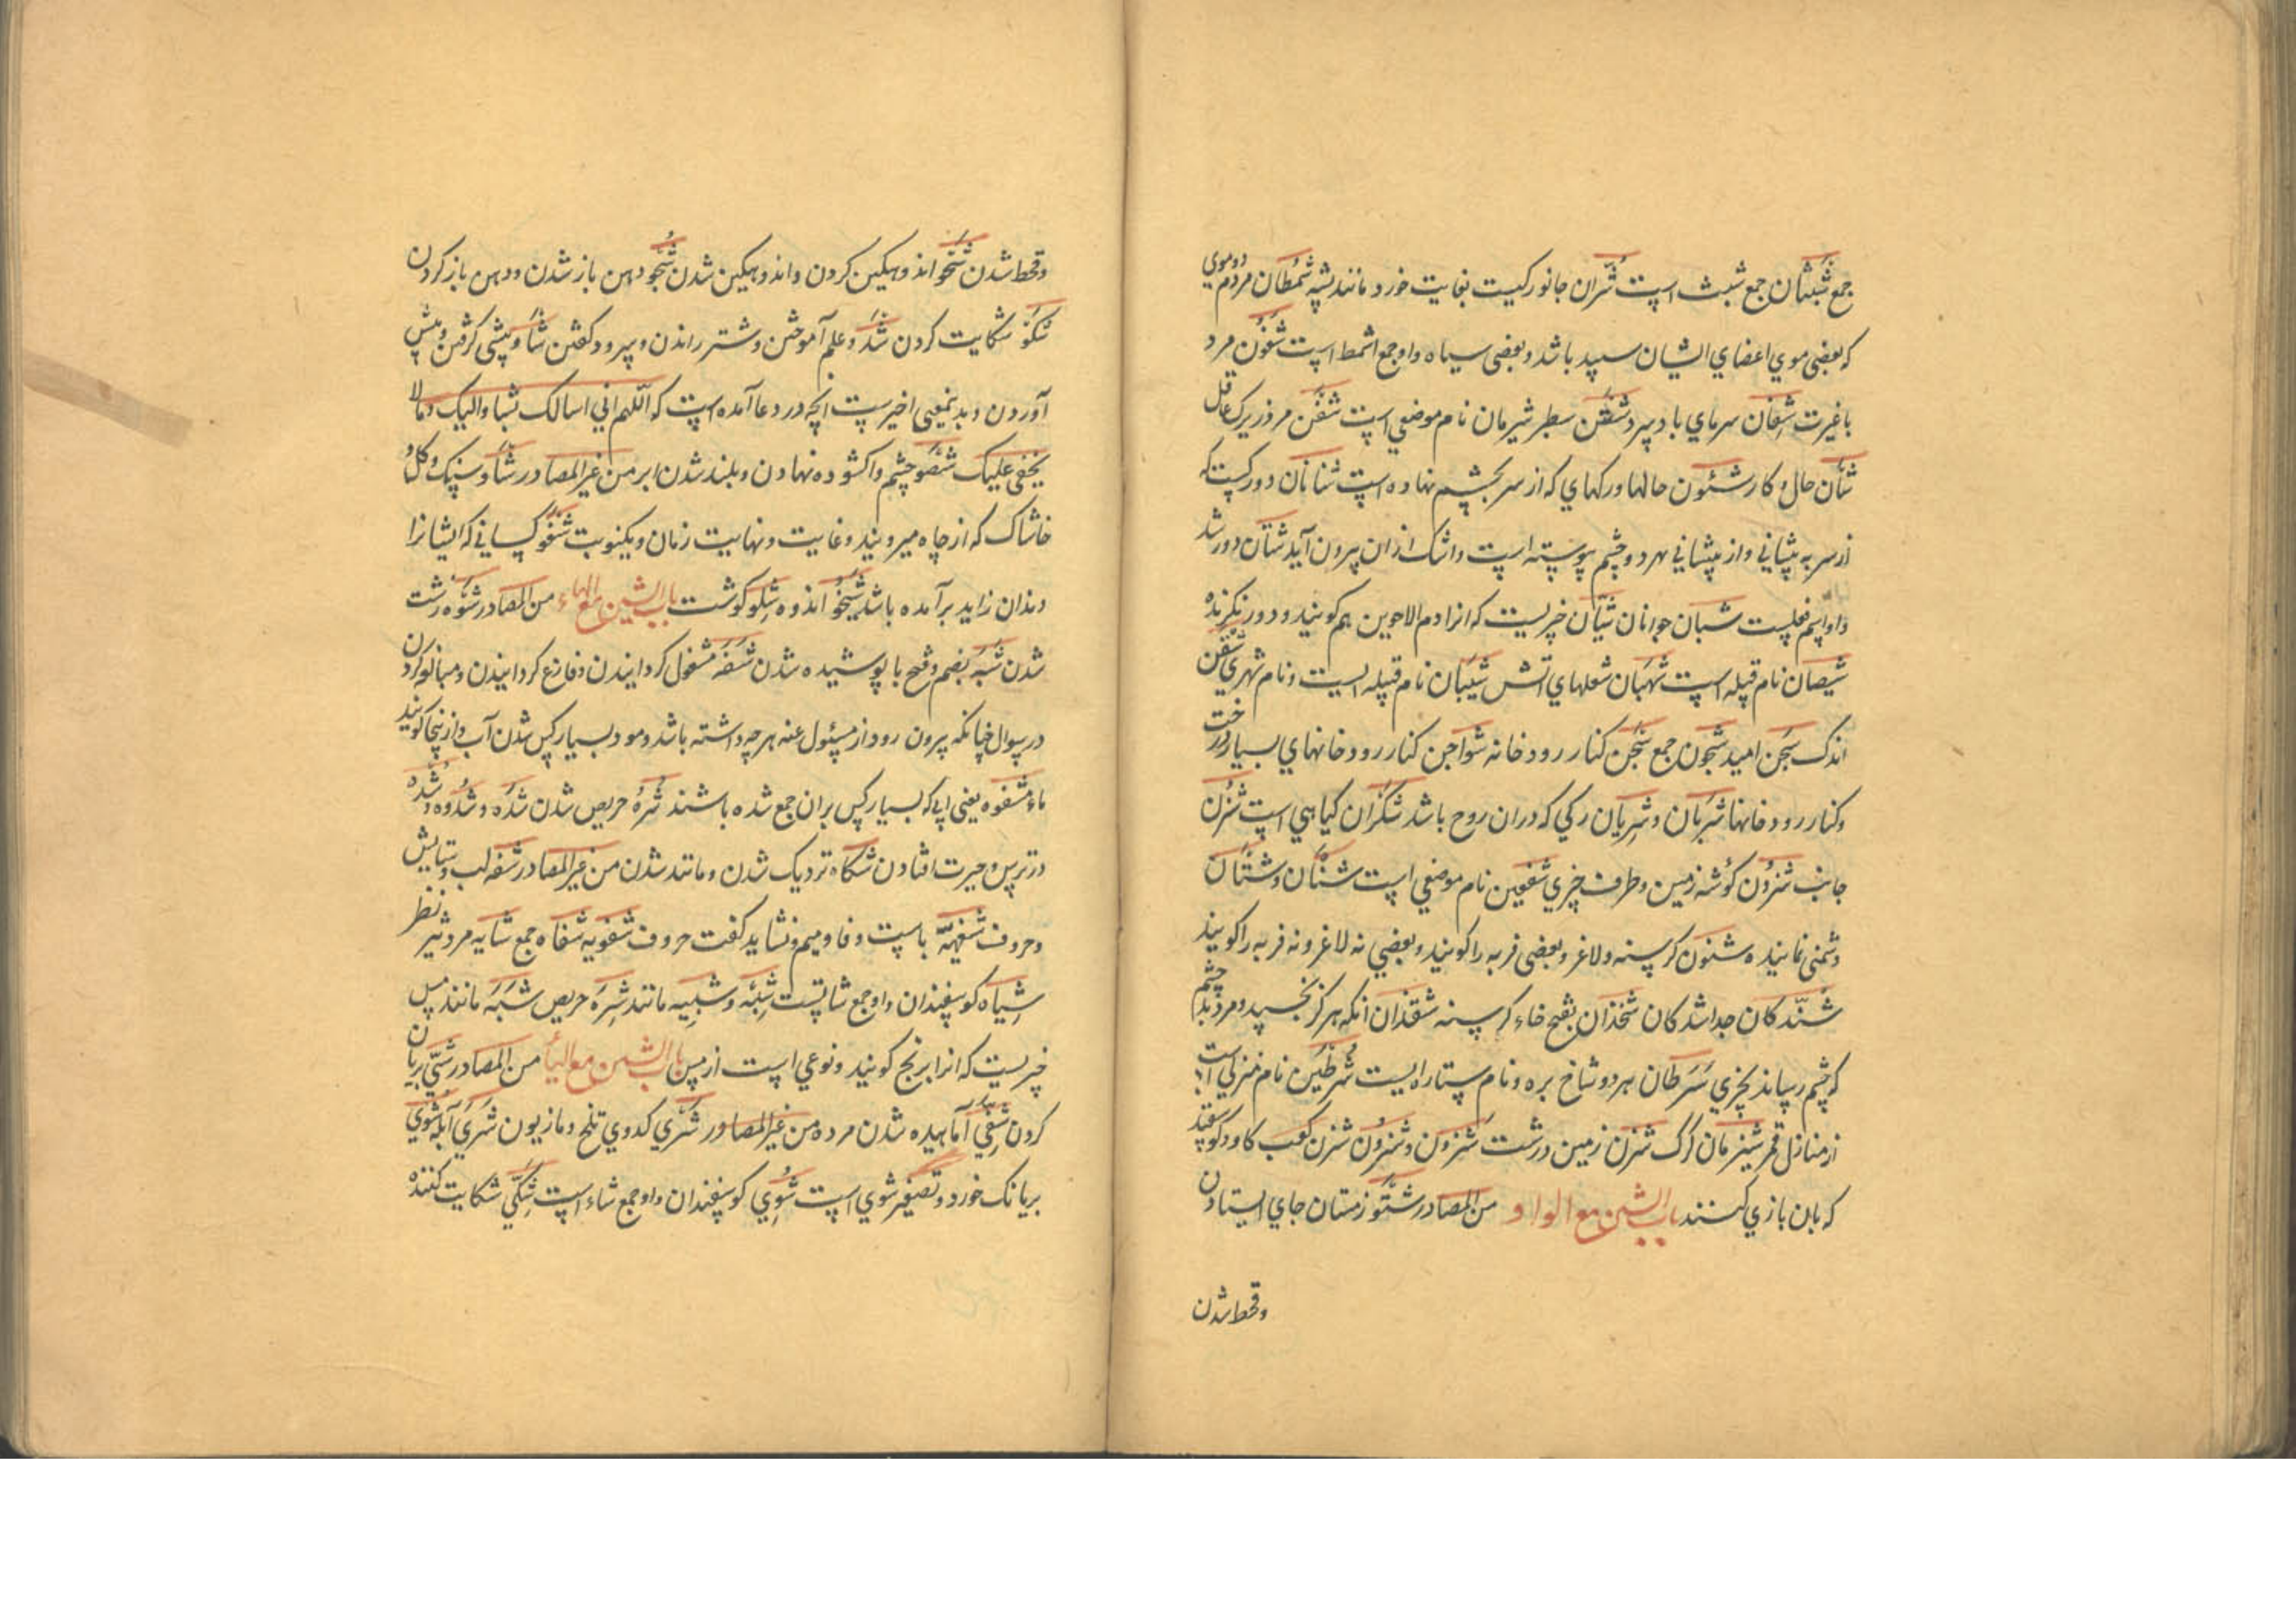 جمع شبثان جمع شبث است شران جانورکیست بغایت خورد مانند پشه شمطان مردم دوموی
که بعضی موی اعضای ایشان سپید باشد و بعضی سیاه و او جمع اشمط است شفون مرد
با غیرت شفان سرمای باد سرد شفتن سطبر شیرمان نام موضعی است شفن مرد زیرک عاقل
شان حال و کار شئون حالها و رکهای که از سر بچشم نهاده است شنانان دو رکست که
از سر به پیشانی و از پیشانی بهر دو چشم پیوسته است و اشک ازان بیرون آید شتان دور شد
و او اسم فعلست شبان جوانان شیان چیزیست که انرا دم الاخوین هم کویند و دور نکرنده
شیصان نام قبیله است شهبان شعلهای اتش شیبان نام قبیله ایست و نام شهری شقن
اندک شجن امید شجون جمع شجن کنار رودخانه شواجن کنار رودخانهای بسیار درخت
و کنار رودخانها شریان و شریان رکی که دران روح باشد شکران کیاهی است شزن
جانب شزون کوشه زمین و طرف چیزی شفعین نام موضعی است شنان و شنتان
دشمنی نماینده شنون کرسنه و لاغر و بعضی فربه را کویند و بعضی نه لاغر و نه فربه را کویند
شندکان جداشدکان شخذان بفتح خاء کرسنه شقذان انکه هرکز نخسپد و مرد بد چشم
که چشم رساند بچیزی شرطان هر دو شاخ بره و نام ستاره ایست شرطین نام منزلی است
از منازل قمر شیزمان کرک شزن زمین درشت شزون و شزون شزن کعب کاو و کوسفند
که بان بازی کنند باب الشین مع الواو من المصادر شتو زمستان جای ایستادن
و قحط شدن
و قحط شدن شجو اندوهکین کردن و اندوهکین شدن شحو دهن باز شدن و دهن باز کردن
شکو شکایت کردن شدو علم آموختن و شتر راندن و سرود کفتن شاو پیشی کرفتن و پیش
آوردن و بدینمعنی اخیرست انچه در دعا آمده است که اللهم انی اسالک بشاو الیک و ما لا
یخفی علیک شصو چشم وا کشوده نهادن و بلند شدن ابر من غیر المصادر شاو سبک و کل و
خاشاک که از چاه میروبند و غایت و نهایت زمان و یکنوبت شغو کسانی که ایشانرا
دندان زاید برآمده باشد شجو اندوه شلو کوشت باب الشین مع الهاء من المصادر شوه زشت
شدن شبه بضم و فتح با پوشیده شدن شفه مشغول کردانیدن و فارغ کردانیدن و مبالغه کردن
در سوال چنانکه بیرون رود از مسئول عنه هر چه داشته باشد و مود بسیار کس شدن آب و ازینجا کویند
ماء مشفوه یعنی ابی که بسیار کس بران جمع شده باشند شره حریص شدن شده و شدوه و شده
در ترس و حیرت افتادن شکاه نزدیک شدن و مانند شدن من غیر المصادر شفه لب و ستایش
و حروف شفهیه باست و فا و میم و نشاید کفت حروف شفویه شفاه جمع شایه مرد تیز نظر
شیاه کوسفندان و او جمع شاتست شبه و شبیه مانند شره حریص شبه مانند مس
چیزیست که انرا برنج کویند و نوعی است از مس باب الشین مع الیا من المصادر شی بریان
کردن شقی آماهیده شدن مرده من غیر المصادر شری کدوی تلخ و مازیون شری آبله شوی
بریانک خورد و تصغیر شوی است شوی کوسفندان و او جمع شاء است شکی شکایت کننده